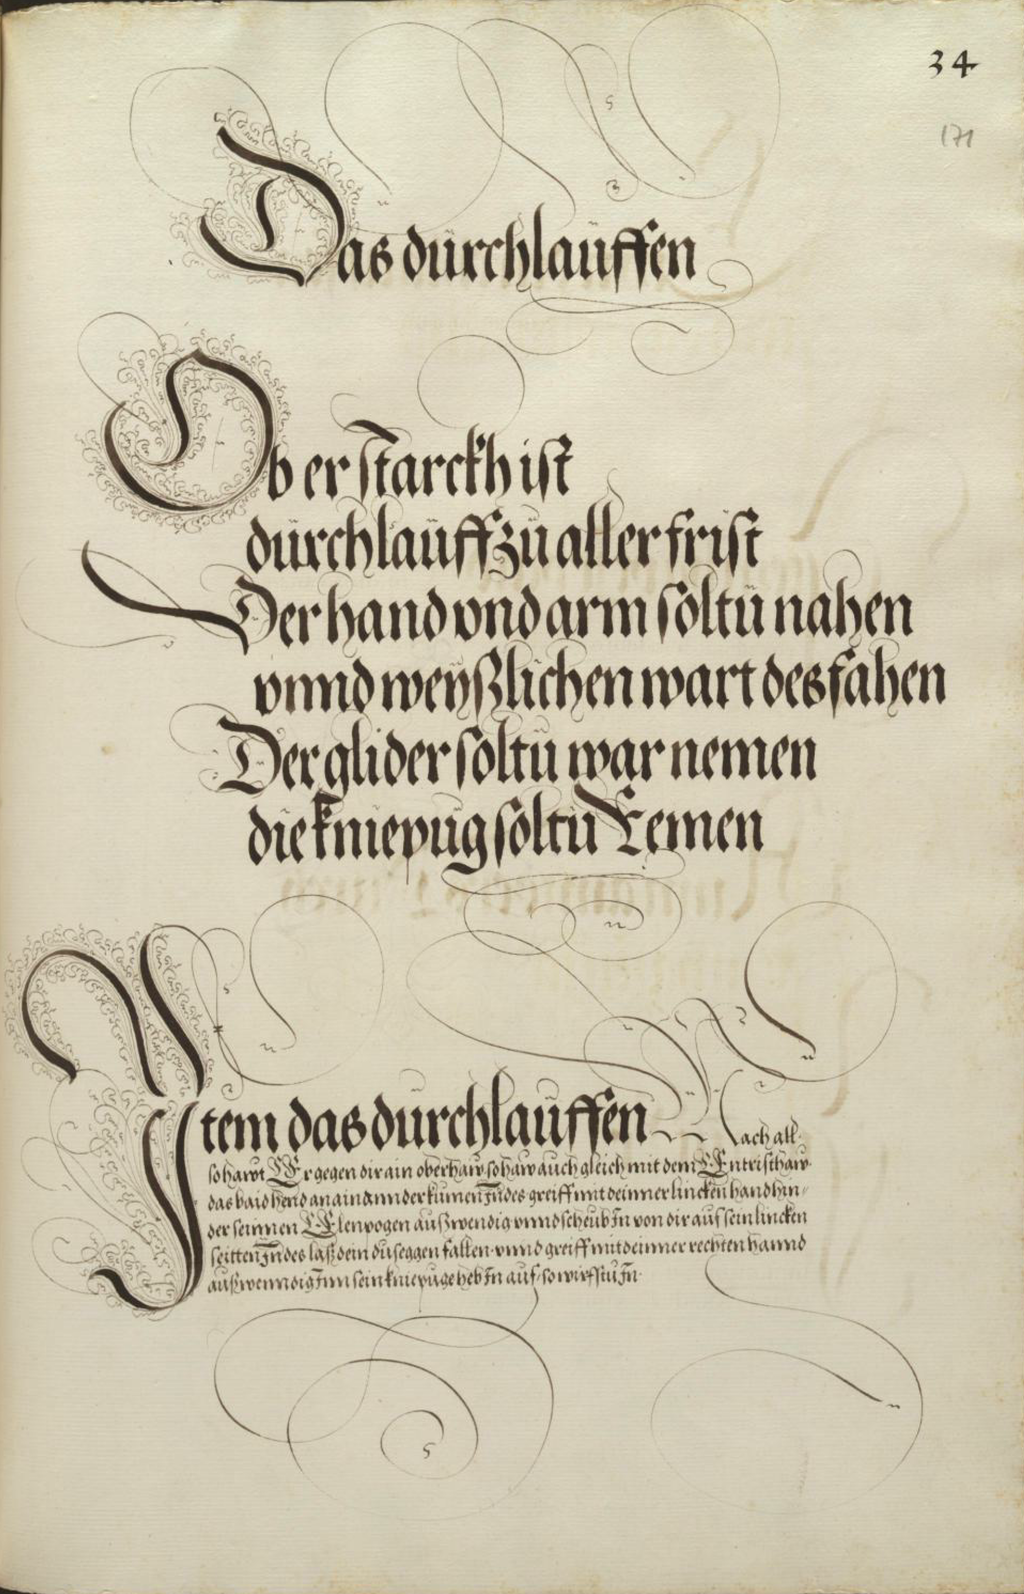 34
171
Das durchlauffen
Ob er starckh ist
durchlauff zu aller frist
Der hand vnd arm soltu nahen
vnnd weyßlichen wart des fahen
Der glider soltu war nemen
die kniepüg soltu Lemen
Item das durchlauffen Mach all
so hawt Er gegen dir ain oberhaw so haw auch gleich mit dem Entrüsthaw
das baid hend an ainannder kumen Indes greiff mit deinner lincken hand hin
der seinnen Elenpogen außwendig vnnd scheub In von dir auf sein lincken
seitten Indes laß dein duseggen fallen vnnd greiff mit deinner rechten hannd
außwenndig Inn sein kniepuge heb In auf so wirfstu In